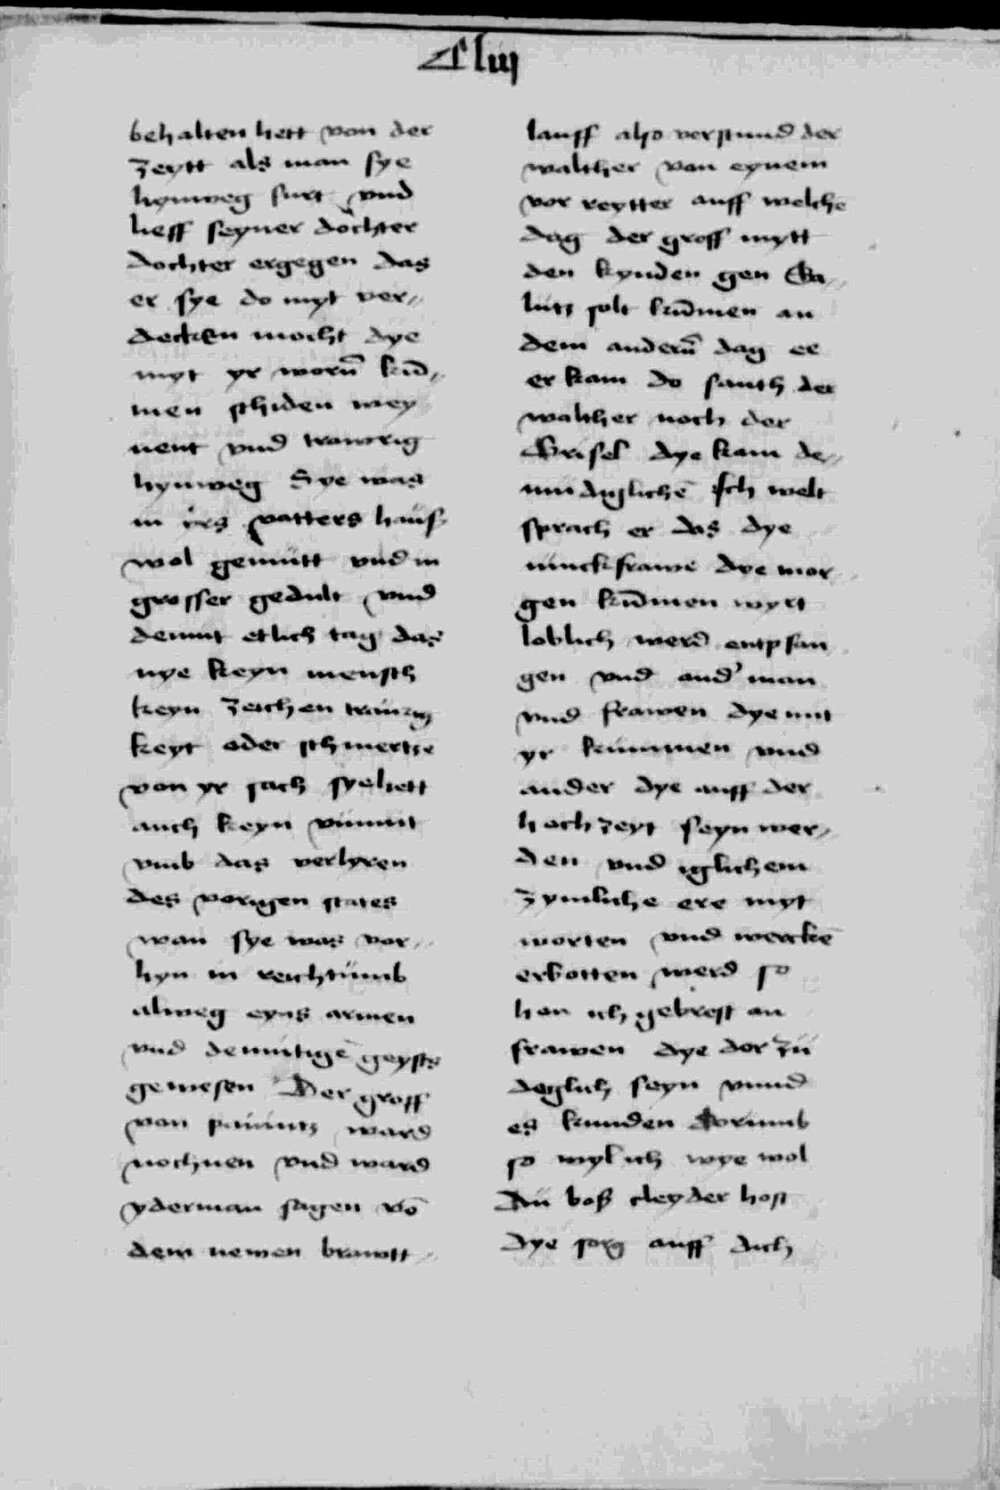 behalten hett von der
zeytt als man sye
hynweg furt vnd
lieff seyner dochter
dochter ergegen das
er sye do myt ver„
decken mocht dye
myt yr worñ kum̄„
men schiden wey
nent vnd trawrig
hynweg Sye was
in irs vatters hauß
wol gemütt vnd in
grosser gedult vnd
demut etlich tag das
nye keyn mensch
keyn zeichen traurig
keyt oder schmertze
von yr sach sye hett
auch keyn vnmut
vmb das verlyren
des vorigen states
wan sye was vor„
hyn in reichtumb
alweg eyns armen
vnd demutigē geysts
gewesen Der groff
von pauintz ward
nochnen vnd ward
yderman sagen vō
dem newen brawtt„
lauff also verstund der
walther von eynem
vor reytter auff welche
dag der groff mytt
den kynden gen Sa„
lutz solt kum̄men an
dem anderñ dag ee
er kam do santh der
walther noch der
Grisel dye kam de„
mudiglichē Ich welt
sprach er das dye
iunckfrawe dye mor
gen kum̄men wyrt
loblich werd entpfan
gen vnd and' man
vnd frawen dye mit
yr kummen vnd
ander dye auff der
hochzeyt seyn wer„
den vnd iglichem
zymliche ere myt
worten vnd werckē
erbotten werd so
hon ich gebrest an
frawen dye dor zu
deglich seyn vnnd
es kunden Dorumb
so wyl ich wye wol
Du boß cleyder host
dye sorg auff dich